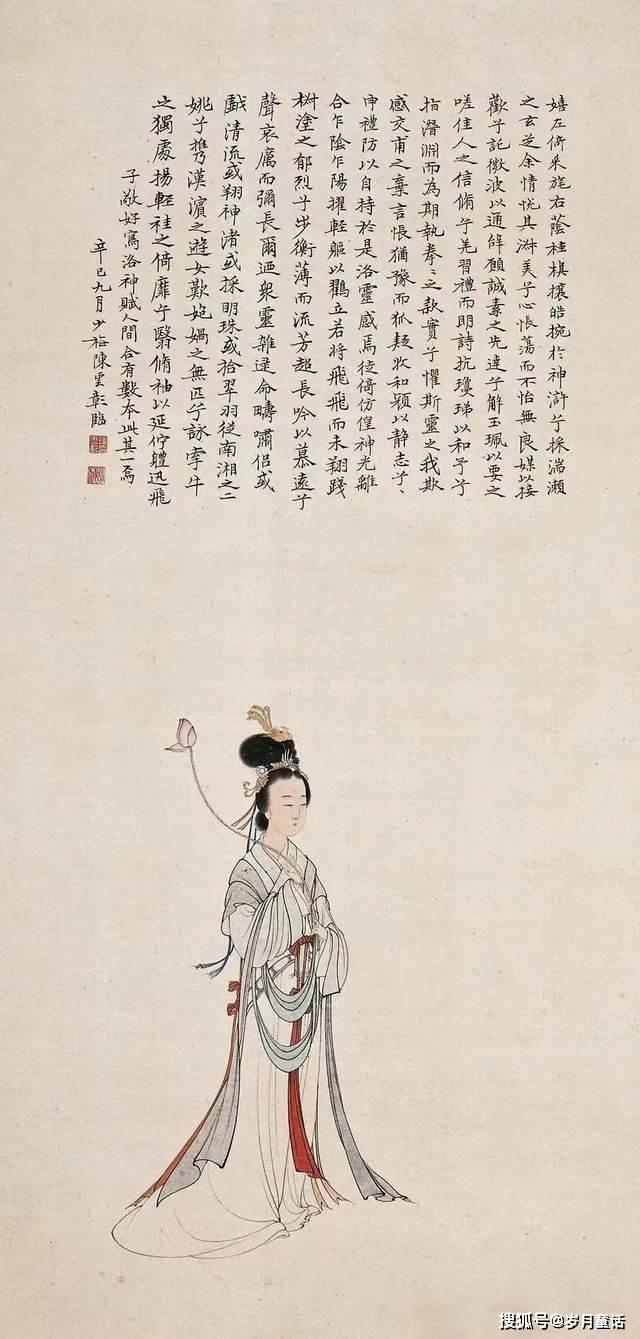 嬉左倚采旄右蔭桂旗攘皓捥於神滸兮採湍瀨
之玄芝余情悅其淑美兮心悵蕩而不怡無良媒以接
歡兮託微波以通辭願誠素之先達兮解玉珮以要之
嗟佳人之信脩兮羌習禮而明詩抗瓊珶以和予兮
指潛淵而為期執拳〻之款實兮懼斯靈之我欺
感交甫之棄言悵猶豫而狐疑收和顏以静志兮、
申禮防以自持於是洛靈感焉徙倚仿偟神光離
合乍陰乍陽擢輕軀以鶴立若將飛飛而未翔踐
椒塗之郁烈兮步衡薄而流芳超長吟以慕遠兮
聲哀厲而彌長爾迺衆靈雜遝命疇嘯侶或
戲清流或翔神渚或採明珠或拾翠羽從南湘之二
姚兮攜漢濱之遊女歎匏媧之無匹兮詠牽牛
之獨處揚輕袿之倚靡兮翳脩袖以延佇軆迅飛
子敬好寫洛神賦人間合有數本此其一焉
辛巳九月少梅陳雲彰臨
搜狐号@岁月童话